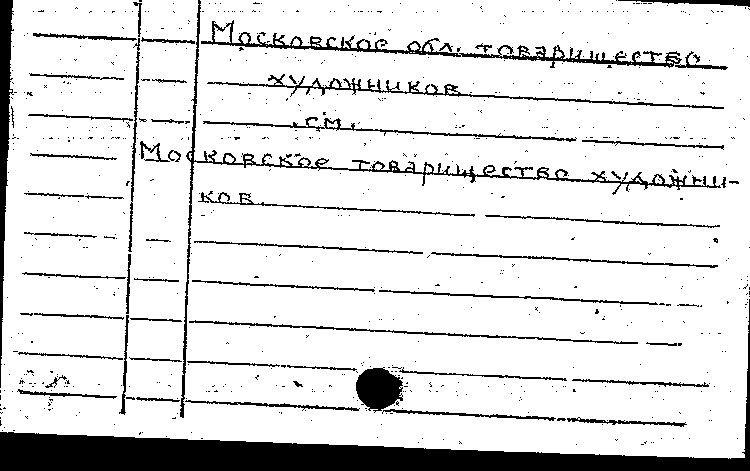 Московское обл. товарищество
художников
см.
Московское товарищество художни-
ков.